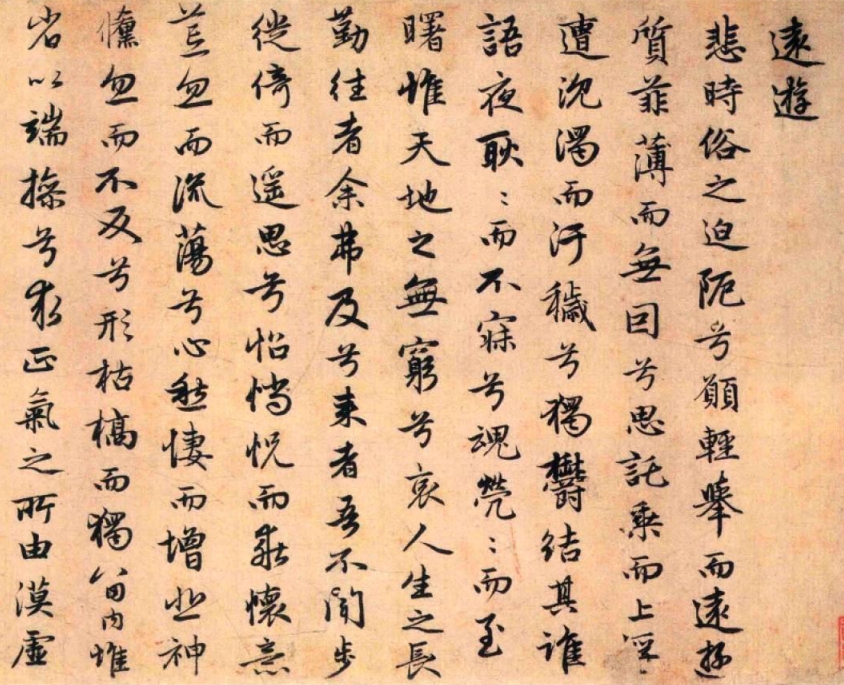 遠遊
悲時俗之迫阨兮願輕舉而遠遊
質菲薄而無因兮思託乘而上
遭沉濁而汙穢兮獨鬱結其誰
語夜耿〻而不寐兮魂煢〻而至
曙惟天地之無窮兮哀人生之長
勤往者余弗及兮來者吾不聞步
徙倚而遥思兮怊惝怳而乖懷意
荒忽而流蕩兮心愁悽而增悲神
儵忽而不反兮形枯槁而獨留内惟
省以端操兮求正氣之所由漠虛